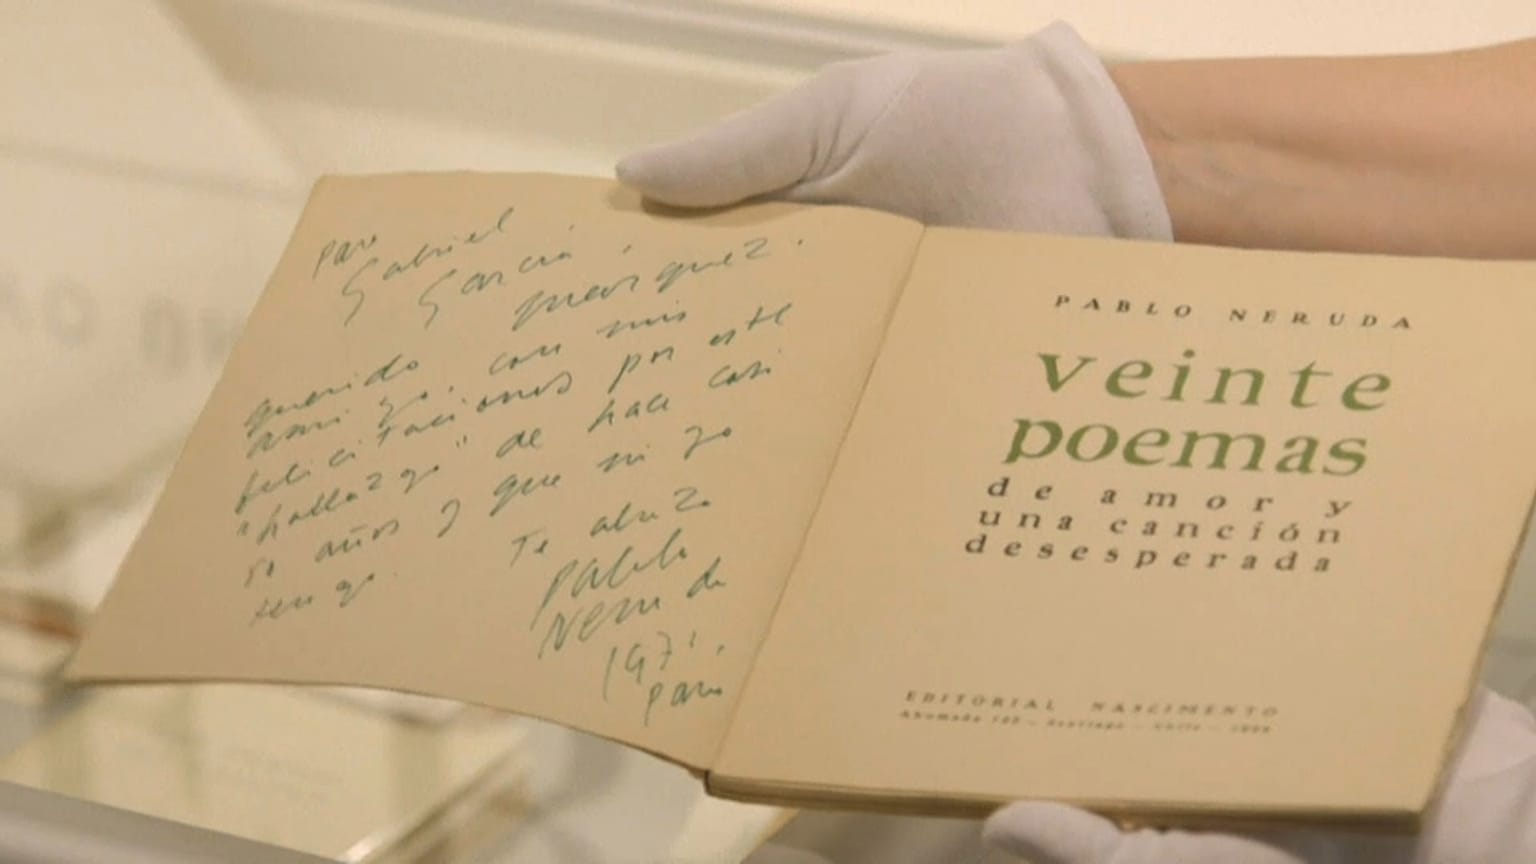 para
Gabriel
García
Márquez.
querido con mis
amigo,
felicitaciones por este
"hallazgo" de hace casi
50 años y que ni yo
tengo. Te abraza
Pablo
Neruda
1971,
Paris
PABLO NERUDA
veinte
poemas
de amor y
una canción
desesperada
EDITORIAL NASCIMENTO
Ahumada Santiago — Chile